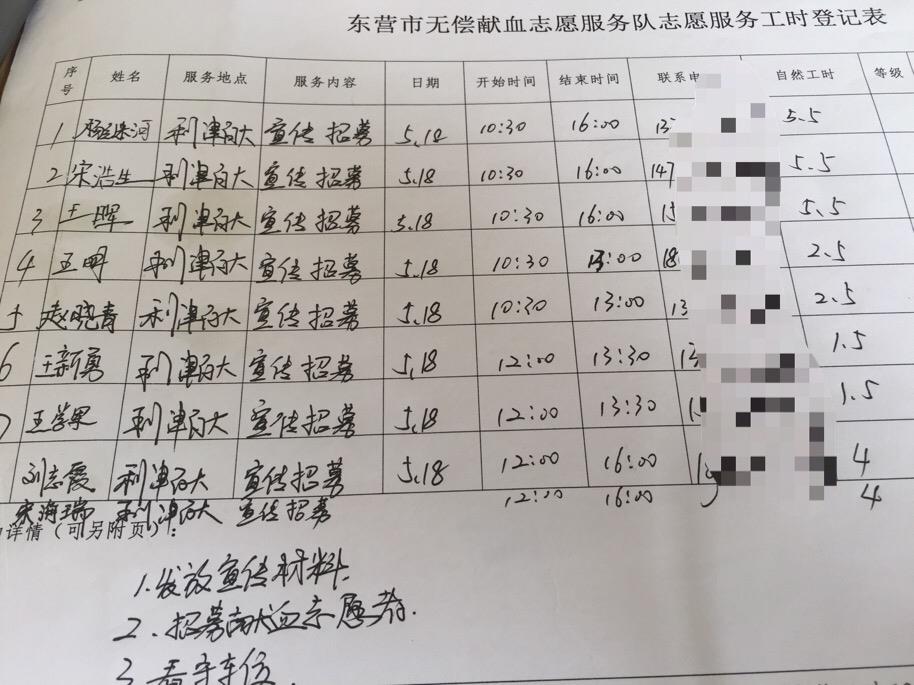 东营市无偿献血志愿服务队志愿服务工时登记表
序号 姓名 服务地点 服务内容 日期 开始时间 结束时间 联系电 自然工时 等级
1 利津百大 宣传招募 5.18 10:30 16:00 5.5
2 宋浩生 利津百大 宣传招募 5.18 10:30 16:00 147 5.5
3 王晖 利津百大 宣传招募 5.18 10:30 16:00 15 5.5
4 王明 利津百大 宣传招募 5.18 10:30 13:00 18 2.5
5 赵晓青 利津百大 宣传招募 5.18 10:30 13:00 13 2.5
6 王新勇 利津百大 宣传招募 5.18 12:00 13:30 13 1.5
7 利津百大 宣传招募 5.18 12:00 13:30 1.5
刘志霞 利津百大 宣传招募 5.18 12:00 16:00 4
宋海瑞 利津百大 宣传招募 12:00 16:00 4
详情（可另附页）：
1.发放宣传材料.
2.招募献血志愿者.
3.看守车位.